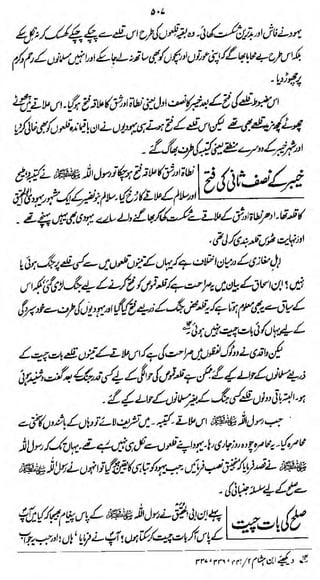 ۵۰۷
یہود نے فاش اور بدترین شکست کھائی۔ وہ بقیہ قلعوں کی طرح اس قلعے سے چپکے چپکے کھسک کر نہ نکل سکے
بلکہ اس طرح بے محابا بھاگے کہ اپنی عورتوں اور بچوں کو بھی ساتھ نہ لے جا سکے اور انہیں مسلمانوں کے رحم و کرم
پر چھوڑ دیا۔
اس مضبوط قلعے کی فتح کے بعد خیبر کا نصف اول یعنی نطاۃ اور شق کا علاقہ فتح ہو گیا۔ اس علاقے میں چھوٹے
چھوٹے کچھ مزید قلعے بھی تھے لیکن اس قلعے کے فتح ہوتے ہی یہودیوں نے ان باقیماندہ قلعوں کو بھی خالی کر دیا
اور شہر خیبر کے دوسرے منطقے یعنی کتیبہ کی طرف بھاگ گئے۔
خیبر کے نصف ثانی کی فتح
نطاۃ اور شق کا علاقہ فتح ہو چکا تو رسول اللہ ﷺ نے کتیبہ، وطیح
اور سلالم کے علاقے کا رخ کیا۔ سلالم بنو نضیر کے ایک مشہور یہودی ابو الحقیق
کا قلعہ تھا۔ ادھر نطاۃ اور شق کے علاقے سے شکست کھا کر بھاگنے والے سارے یہودی بھی یہیں پہنچے تھے۔
اور نہایت ٹھوس قلعہ بندی کر لی تھی۔
اہل مغازی کے درمیان اختلاف ہے کہ یہاں کے تینوں قلعوں میں سے کسی قلعے پر جنگ ہوئی یا
نہیں؟ ابن اسحاق کے بیان میں یہ صراحت ہے کہ قلعہ قموص کو فتح کرنے کے لیے جنگ لڑی گئی بلکہ اس
کے سیاق سے یہ بھی معلوم ہوتا ہے کہ یہ قلعہ محض جنگ کے ذریعے فتح کیا گیا اور یہودیوں کی طرف سے خود سپردگی
کے لیے یہاں کوئی بات چیت نہیں ہوئی
لیکن واقدی نے دو ٹوک لفظوں میں صراحت کی ہے کہ اس علاقے کے تینوں قلعے بات چیت کے
ذریعے مسلمانوں کے حوالے کیے گئے؛ ممکن ہے قلعہ قموص کی حوالگی کے لیے کسی قدر جنگ کے بعد گفت و شنید ہوئی
ہو۔ البتہ باقی دونوں قلعے کسی جنگ کے بغیر مسلمانوں کے حوالے کیے گئے۔
جب رسول اللہ ﷺ اس علاقہ۔ کتیبہ۔ میں تشریف لائے تو وہاں کے باشندوں کا سختی سے
محاصرہ کیا۔ یہ محاصرہ چودہ روز جاری رہا۔ یہود اپنے قلعوں سے نکل ہی نہیں رہے تھے۔ یہاں تک کہ رسول اللہ
ﷺ نے قصد فرمایا کہ منجنیق نصب فرمائیں۔ جب یہود کو تباہی کا یقین ہو گیا تو انہوں نے رسول اللہ ﷺ
سے صلح کے لیے سلسلہ جنبانی کی۔
صلح کی بات چیت
پہلے ابن ابی الحقیق نے رسول اللہ ﷺ کے پاس پیغام بھیجا کہ کیا میں آپ
کے پاس آ کر بات چیت کر سکتا ہوں؟ آپ نے فرمایا ''ہاں'' اور جب یہ جواب
دیکھئے ابن ہشام ۲/